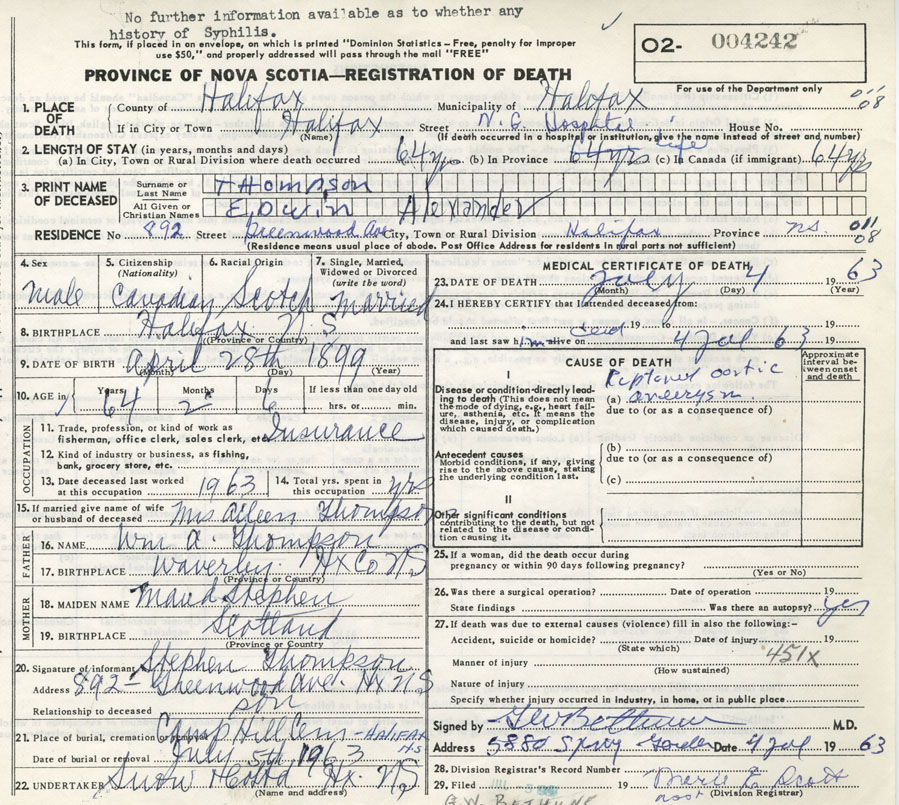 No further information available as to whether any
history of Syphilis.
This form, if placed in an envelope, on which is printed "Dominion Statistics – Free, penalty for improper
use $50," and properly addressed will pass through the mail "FREE"
O2- 004242
PROVINCE OF NOVA SCOTIA—REGISTRATION OF DEATH
For use of the Department only
1. PLACE OF DEATH
County of Halifax Municipality of Halifax
If in City or Town Halifax Street N. G. Hospital House No.
(Name) (If death occurred in a hospital or institution, give the name instead of street and number)
2. LENGTH OF STAY (in years, months and days)
(a) In City, Town or Rural Division where death occurred 64 yrs (b) In Province 64 yrs life (c) In Canada (if immigrant) 64 yrs
3. PRINT NAME OF DECEASED
Surname or Last Name THOMPSON
All Given or Christian Names Edwin Alexander
RESIDENCE No 892 Street Greenwood Ave City, Town or Rural Division Halifax Province N.S. 011 08
(Residence means usual place of abode. Post Office Address for residents in rural parts not sufficient)
4. Sex Male
5. Citizenship (Nationality) Canadian
6. Racial Origin Scotch
7. Single, Married, Widowed or Divorced (write the word) Married
8. BIRTHPLACE Halifax N.S
(Province or Country)
9. DATE OF BIRTH April 28th 1899
(Month) (Day) (Year)
10. AGE in Years 64 Months 2 Days 6 If less than one day old hrs. or min.
OCCUPATION
11. Trade, profession, or kind of work as
fisherman, office clerk, sales clerk, etc. Insurance
12. Kind of industry or business, as fishing,
bank, grocery store, etc.
13. Date deceased last worked at this occupation 1963
14. Total yrs. spent in this occupation yrs
15. If married give name of wife or husband of deceased Mrs Aileen Thompson
FATHER
16. NAME Wm A. Thompson
17. BIRTHPLACE Waverley Hx Co NS
(Province or Country)
MOTHER
18. MAIDEN NAME Maud Stephen
19. BIRTHPLACE Scotland
(Province or Country)
20. Signature of informant Stephen Thompson
Address 892- Greenwood Ave. Hx NS
Relationship to deceased son
21. Place of burial, cremation or removal Camp Hill Cem - HALIFAX NS
Date of burial or removal July 5th 1963
22. UNDERTAKER Snow & Co Ltd Hx. NS
(Name and address)
MEDICAL CERTIFICATE OF DEATH
23. DATE OF DEATH July 4 1963
(Month) (Day) (Year)
24. I HEREBY CERTIFY that I attended deceased from:
19 to 19
and last saw him alive on dead 4 Jul 1963
CAUSE OF DEATH
Approximate interval between onset and death
I
Disease or condition directly leading to death (This does not mean the mode of dying, e.g., heart failure, asthenia, etc. It means the disease, injury, or complication which caused death.)
(a) Ruptured aortic aneurysm.
due to (or as a consequence of)
Antecedent causes
Morbid conditions, if any, giving rise to the above cause, stating the underlying condition last.
(b)
due to (or as a consequence of)
(c)
II
Other significant conditions
contributing to the death, but not related to the disease or condition causing it.
25. If a woman, did the death occur during
pregnancy or within 90 days following pregnancy?
(Yes or No)
26. Was there a surgical operation? Date of operation 19
State findings Was there an autopsy? yes
27. If death was due to external causes (violence) fill in also the following:–
Accident, suicide or homicide? Date of injury 19
(State which) 451X
Manner of injury
(How sustained)
Nature of injury
Specify whether injury occurred in industry, in home, or in public place
Signed by GW Bethune M.D.
Address 5880 Spring Garden Date 4 Jul 1963
28. Division Registrar's Record Number
29. Filed 19 Marie E Scott
asst (Division Registrar)
G.W. BETHUNE